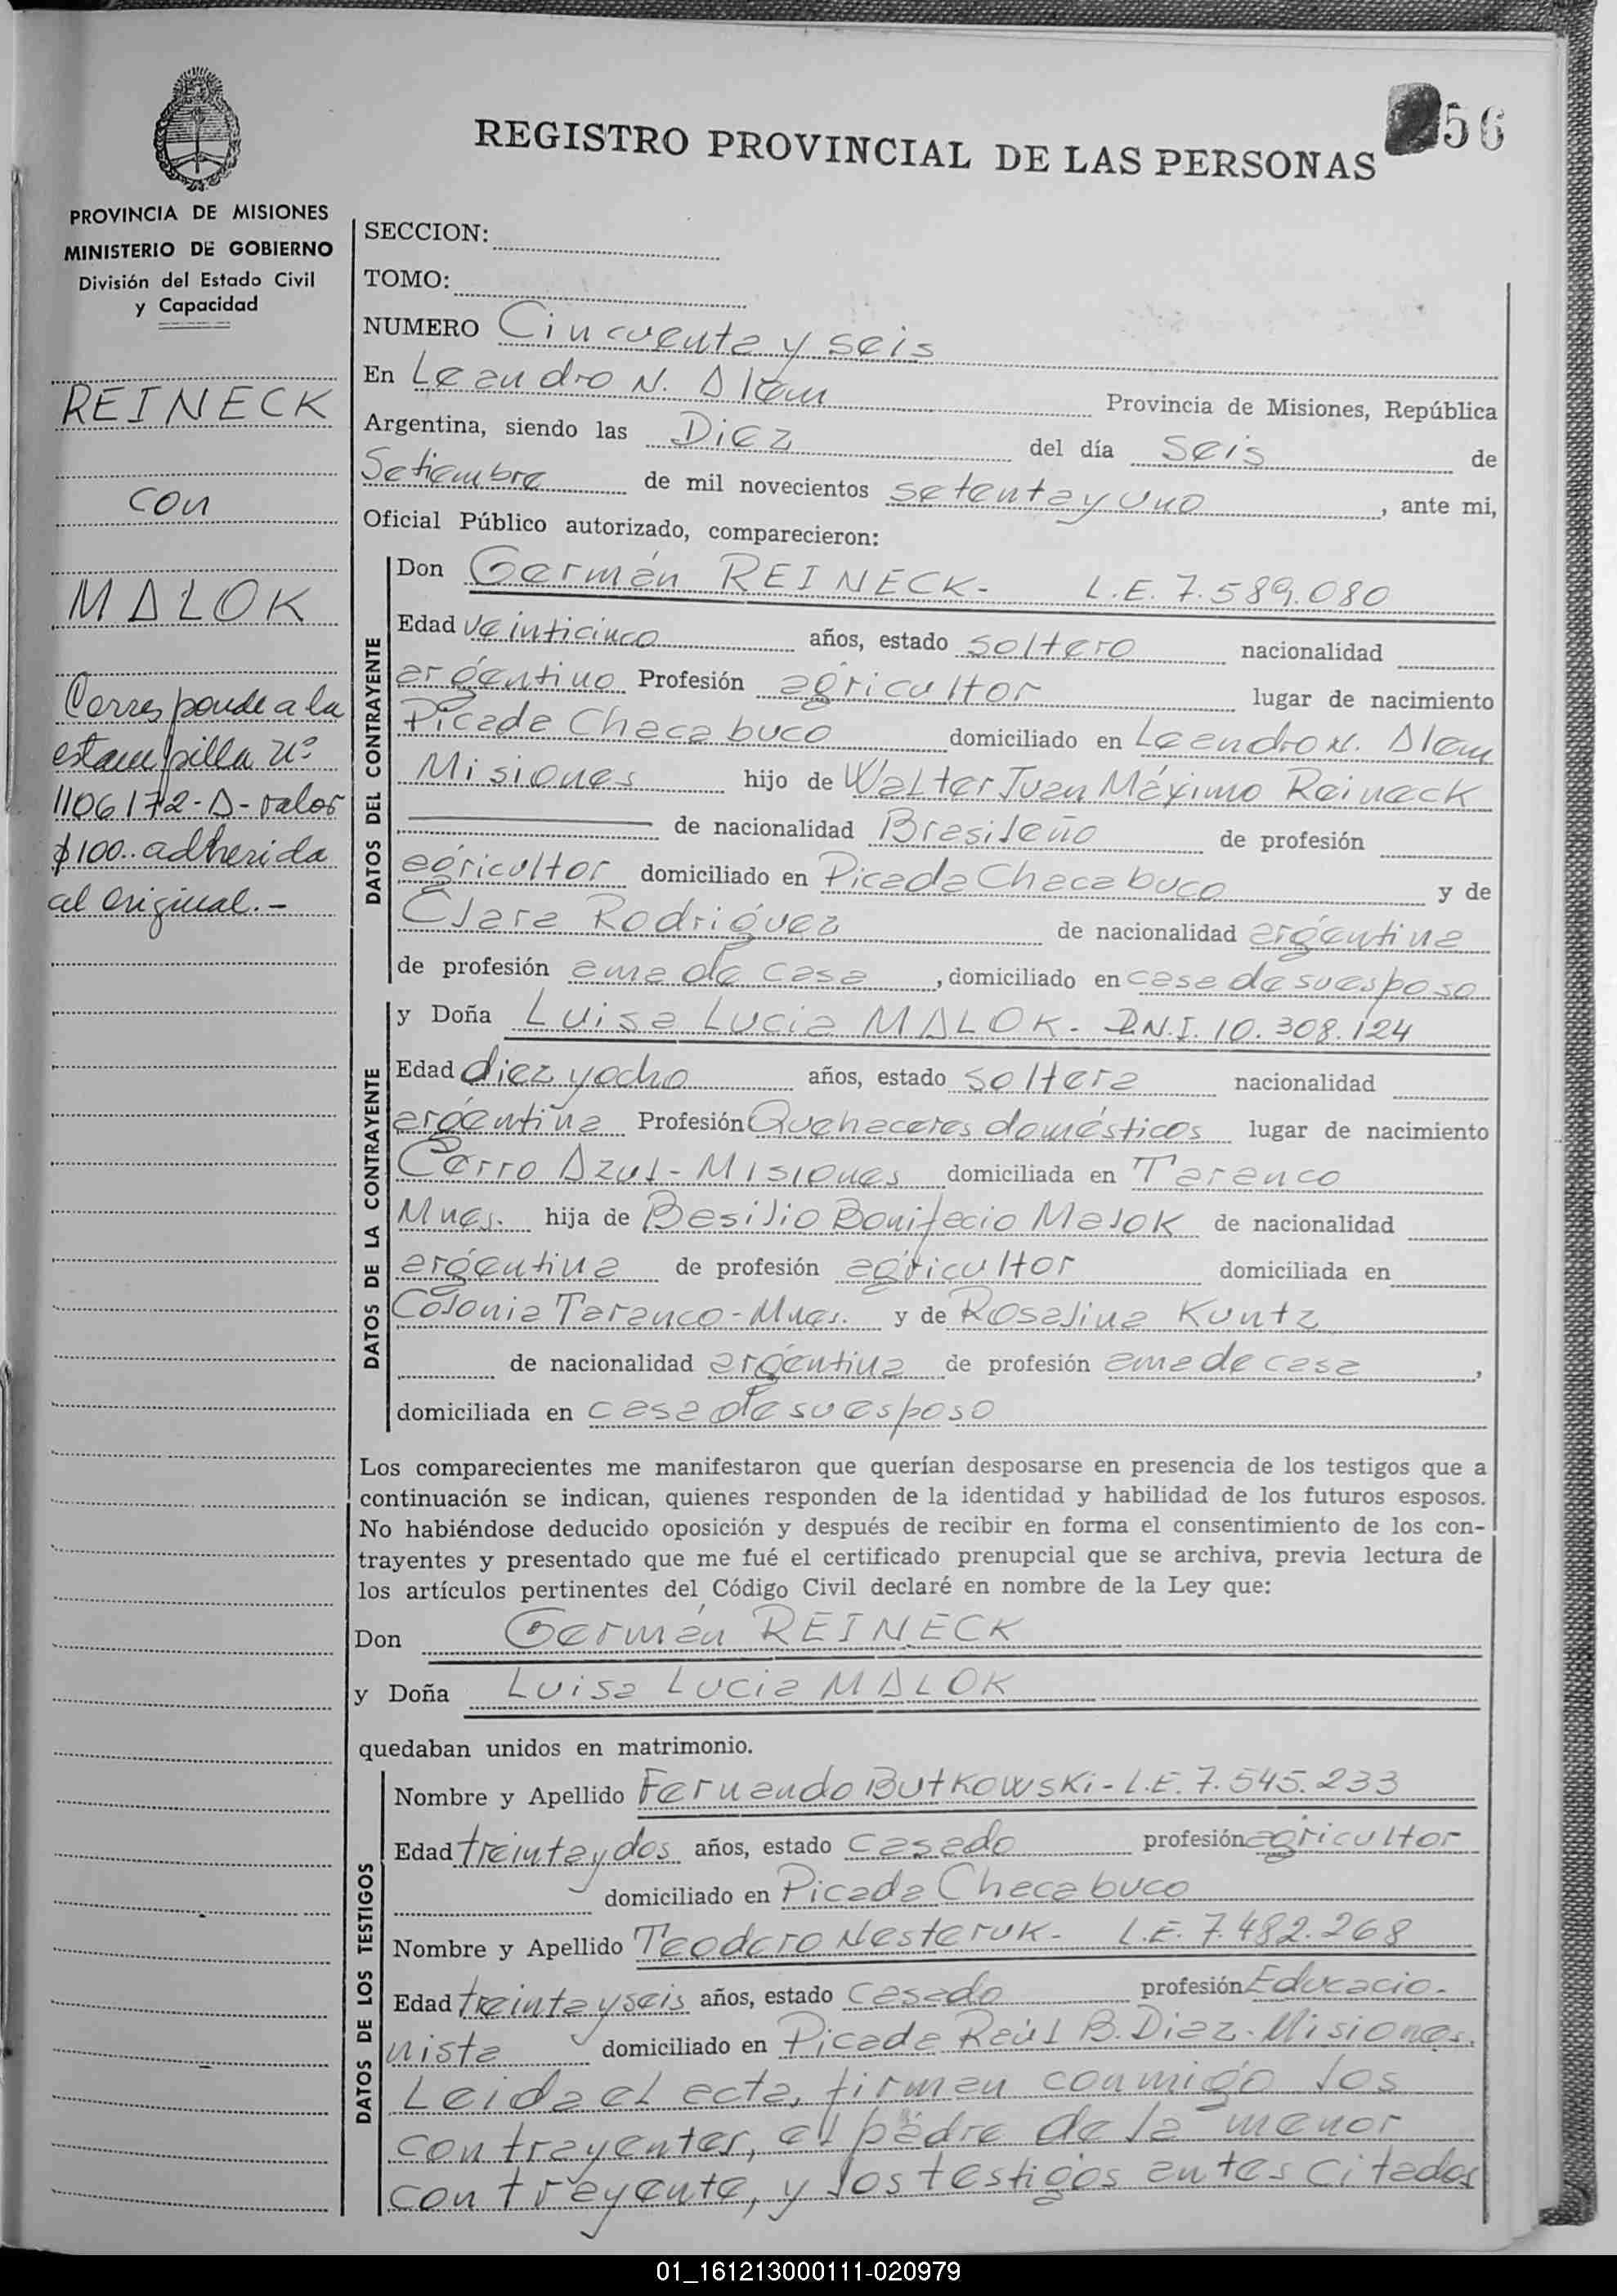 56
REGISTRO PROVINCIAL DE LAS PERSONAS
PROVINCIA DE MISIONES
MINISTERIO DE GOBIERNO
División del Estado Civil
y Capacidad
REINECK
con
MALOK
Corresponde a la
estampilla Nº
1106172-A-valor
$100.. adherida
al original.-
SECCION:
TOMO:
NUMERO Cincuenta y seis
En Leandro N. Alem Provincia de Misiones, República
Argentina, siendo las Diez del día seis de
Setiembre de mil novecientos setenta y uno, ante mi,
Oficial Público autorizado, comparecieron:
DATOS DEL CONTRAYENTE
Don Germán REINECK- L.E. 7.589.080
Edad veinticinco años, estado soltero nacionalidad
argentino Profesión agricultor lugar de nacimiento
Picada Chacabuco domiciliado en Leandro N. Alem
Misiones hijo de Walter Juan Máximo Reineck
de nacionalidad Brasileño de profesión
agricultor domiciliado en Picada Chacabuco y de
Clara Rodríguez de nacionalidad argentina
de profesión ama de casa, domiciliado en casa de su esposo
DATOS DE LA CONTRAYENTE
y Doña Luisa Lucia MALOK- D.N.I. 10.308.124
Edad diez y ocho años, estado soltera nacionalidad
argentina Profesión Quehaceres domésticos lugar de nacimiento
Cerro Azul-Misiones domiciliada en Taranco
Mnes. hija de Basilio Bonifacio Malok de nacionalidad
argentina de profesión agricultor domiciliada en
Colonia Taranco-Mnes. y de Rosalina Kuntz
de nacionalidad argentina de profesión ama de casa,
domiciliada en casa de su esposo
Los comparecientes me manifestaron que querían desposarse en presencia de los testigos que a
continuación se indican, quienes responden de la identidad y habilidad de los futuros esposos.
No habiéndose deducido oposición y después de recibir en forma el consentimiento de los con-
trayentes y presentado que me fué el certificado prenupcial que se archiva, previa lectura de
los artículos pertinentes del Código Civil declaré en nombre de la Ley que:
Don Germán REINECK
y Doña Luisa Lucia MALOK
quedaban unidos en matrimonio.
DATOS DE LOS TESTIGOS
Nombre y Apellido Fernando Butkowski-L.E. 7.545.233
Edad treinta y dos años, estado casado profesión agricultor
domiciliado en Picada Chacabuco
Nombre y Apellido Teodoro Nesteruk- L.E. 7.482.268
Edad treinta y seis años, estado casado profesión Educacio-
nista domiciliado en Picada Raúl B. Diaz-Misiones.
Leida el acta, firman conmigo los
contrayentes, el padre de la menor
contrayente, y los testigos antes citados
01_161213000111-020979